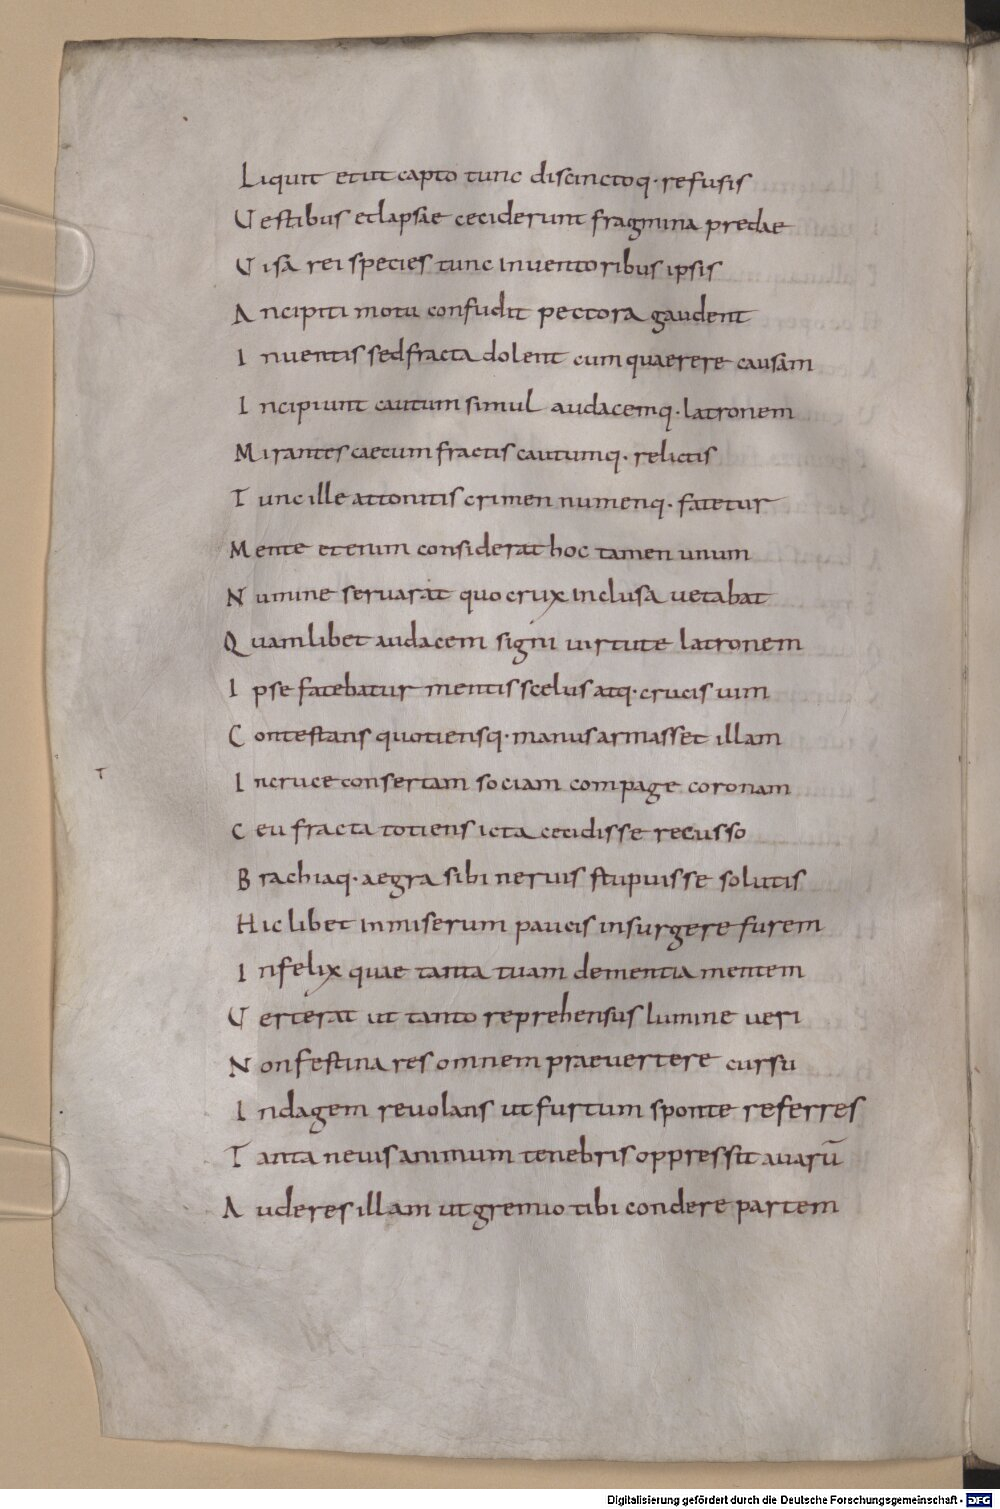 Liquit et ut capto tunc discinctoq· refusis
Vestibus etlapsae ceciderunt fragmina predae
Visa rei species tunc inventoribus ipsis
Ancipiti motu confudit pectora gaudent
Inventis sed fracta dolent cum quaerere causam
Incipiunt cautum simul audacemq· latronem
Mirantes caecum fractis cautumq· relictis
Tunc ille attonitis crimen numenq· fatetur
Mente etenim considerat hoc tamen unum
Numine servarat quo crux inclusa vetabat
Quamlibet audacem signi virtute latronem
Ipse fatebatur mentis scelus atq· crucis vim
Contestans quotiensq· manus armasset illam
T
Incruce consertam sociam compage coronam
Ceu fracta totiens icta cecidisse recusso
Brachiaq· aegra sibi nervis stupuisse solutis
Hic libet inmiserum paucis insurgere furem
Infelix quae tanta tuam dementia mentem
Verterat ut tanto reprehensus lumine veri
Non festinares omnem praevertere cursu
Indagem revolans ut furtum sponte referres
Tanta nevis animum tenebris oppressit avarū
Auderes illam ut gremio tibi condere partem
Digitalisierung gefördert durch die Deutsche Forschungsgemeinschaft - DFG